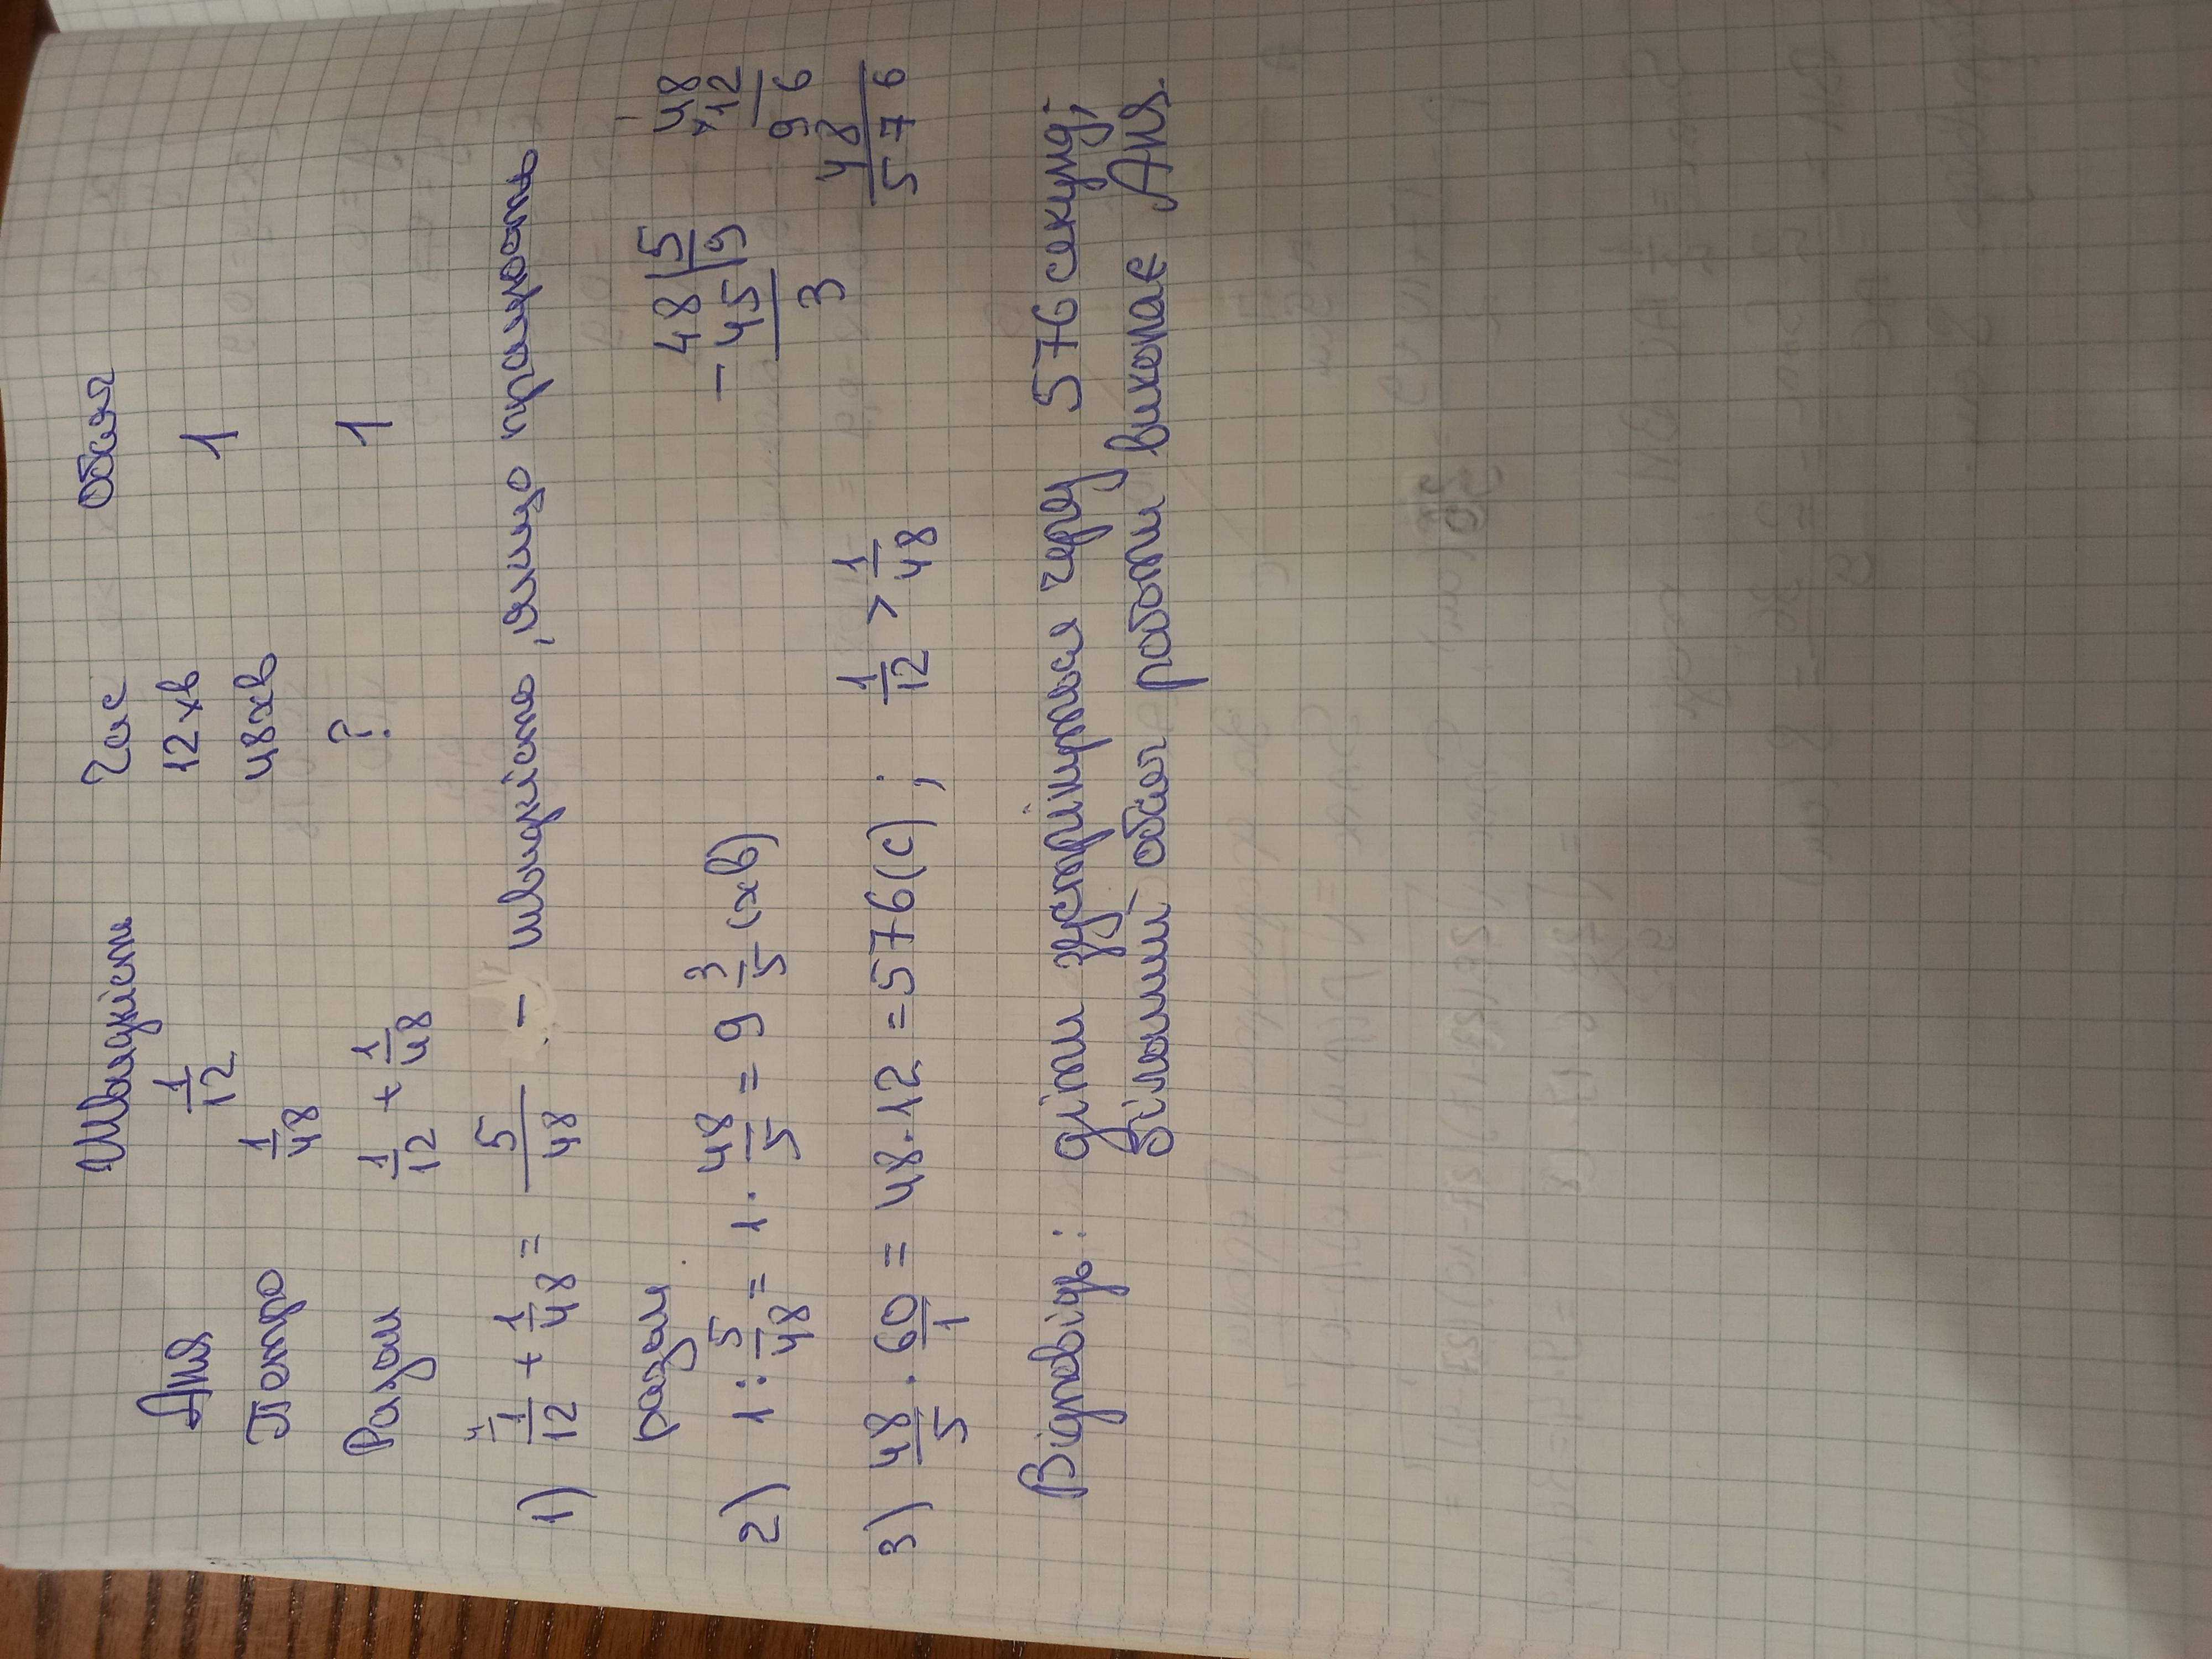 Швидкість Час Обсяг
Аня 1/12 12 хв 1
Петро 1/48 48хв
Разом 1/12 + 1/48 ? 1
1) 4 1/12 + 1/48 = 5/48 - швидкість, якщо працювати
разом
2) 1 : 5/48 = 1 · 48/5 = 9 3/5 (хв)
- 48 | 5
45 | 9
3
1
48
× 12
96
48
576
3) 48/5 · 60/1 = 48 · 12 = 576 (с) ; 1/12 > 1/48
Відповідь: діти зустрінуться через 576 секунд;
більший обсяг роботи виконає Аня.